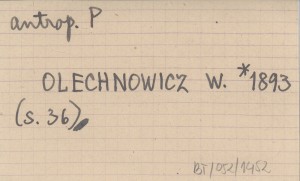 antrop. P
OLECHNOWICZ W. *1893
(s. 36)
BT/052/1452